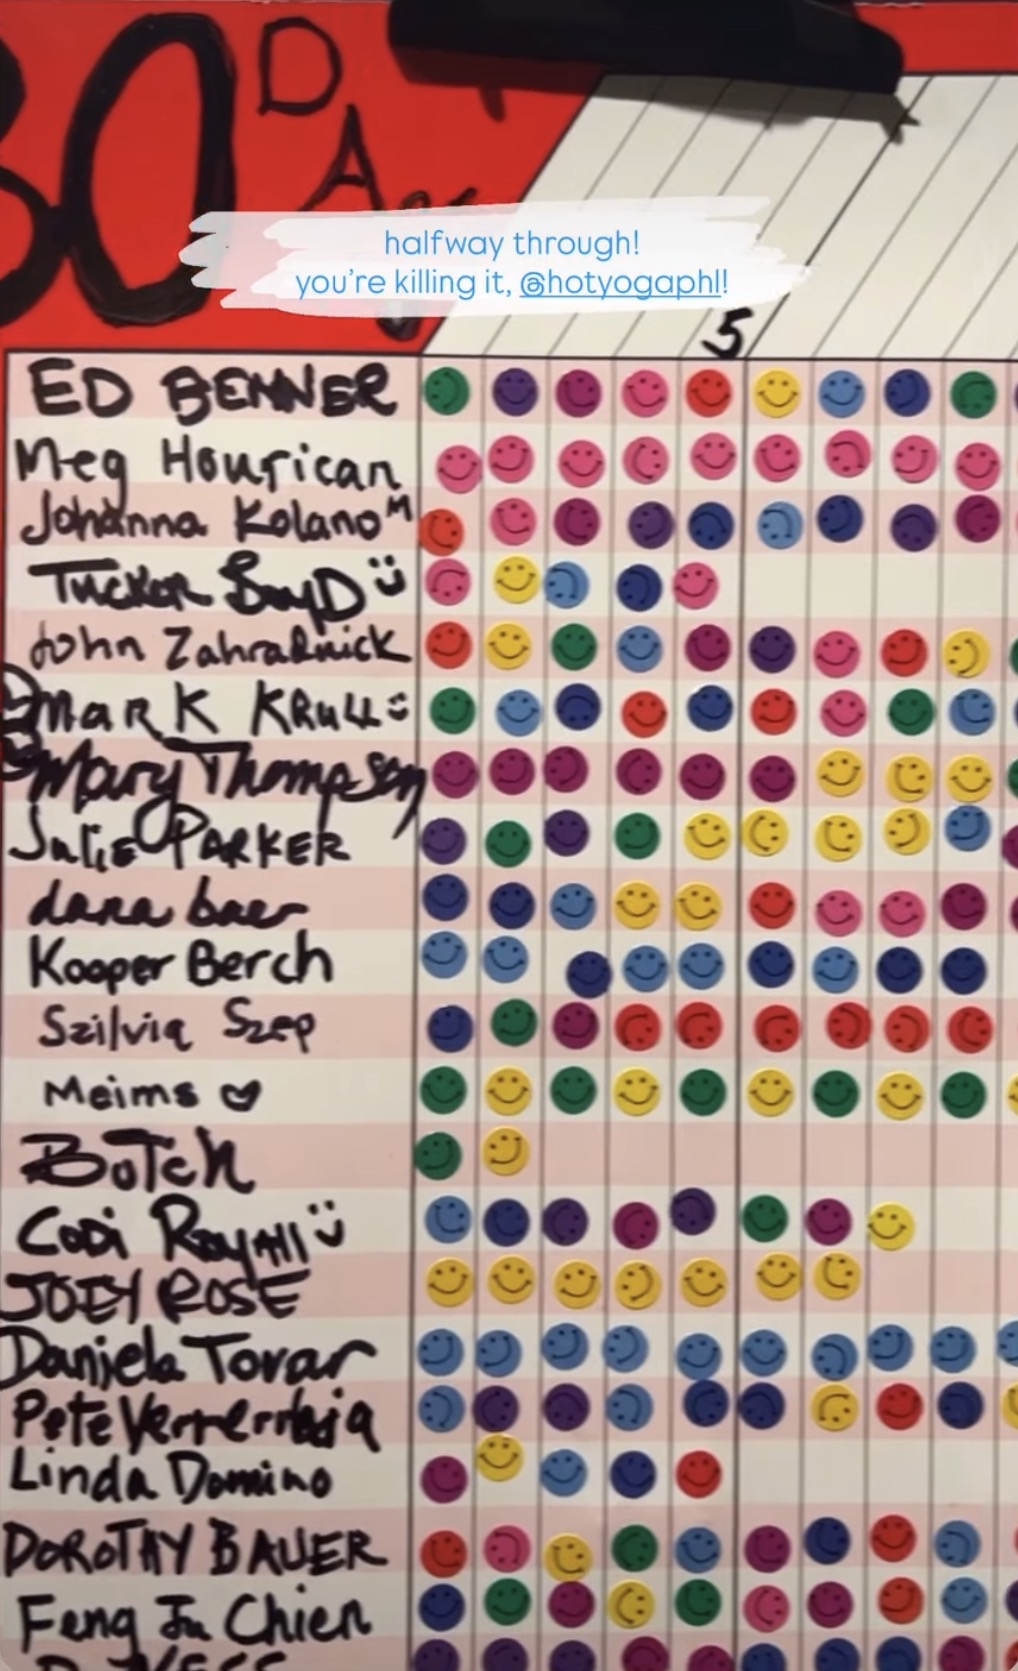 30 DAY
halfway through!
you're killing it, @hotyogaphl!
5
ED BENNER
Meg Hourican
Johanna Kolano M
Tucker Boyd
John Zahradnick
Mark Krull
Mary Thompson
Julie PARKER
dana baer
Kooper Berch
Szilvia Szep
Meims
Butch
Codi
JOEY ROSE
Daniela Tovar
Pete
Linda Domino
DOROTHY BAUER
Feng Ju Chien